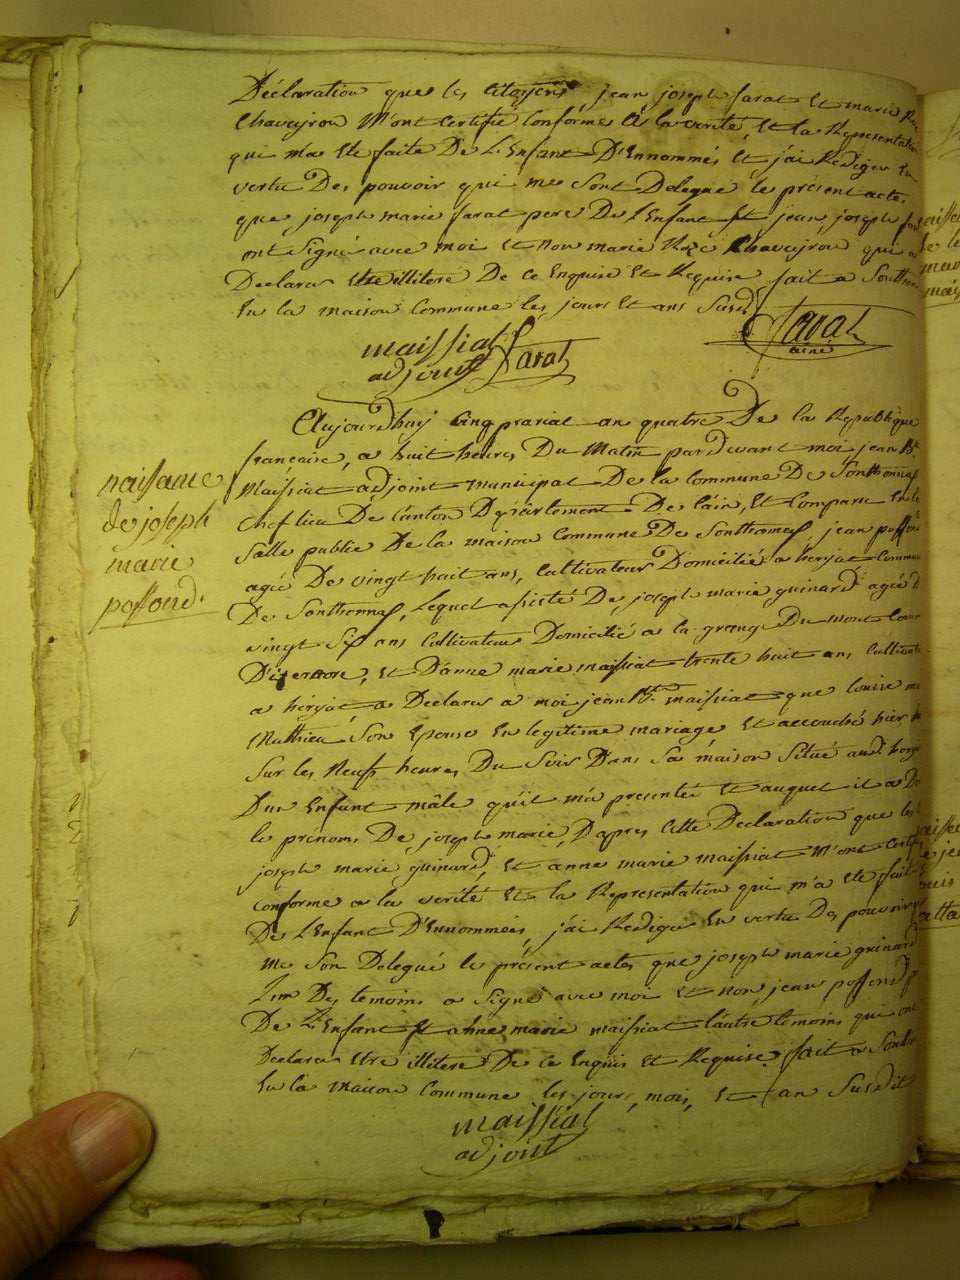 Déclaration que les citoyens jean joseph farat et marie
Chaveyron M'ont Certifié Conforme à la verité, et la Representation
qui m'a ete faite De L'Enfant D'Ennommés et j'ai Rediger En
vertu Des pouvoir qui me Sont Delegué le présent acte,
que joseph marie farat pere De L'Enfant et jean joseph
ont Signé avec moi et non marie Chaveyron qui
Declarer etre illitere De ce Enquise et Requise fait a Sonthonn
En la maison Commune les jours et ans Susd
maissiat
adjoint
farat
farat
ainé
Aujourdhuy Cinq prarial an quatre De la Republique
française, a huit heures Du Matin par Devant moi jean Bte
Maissiat adjoint municipal De la Commune De Sonthonnas
Chef lieu De Canton Département De Lain, Est Comparu En la
Salle publie De la maison Commune De Sonthonnas jean poffond
agé De vingt huit ans, Cultivateur Domicilié a hérjat Commune
De Sonthonnas, Lequel assisté De joseph marie guinard agée D
vingt Six ans Cultivateur Domicilié a la grange Du mont
D'izernore, et D'anne marie maissiat trente huit ans Cultivat
a hérjat, a Declarer a moi jean Bte maissiat que louise
Mathieu Son Epouse En legitime mariage Est accouché hier
Sur les Neufs heures Du Soir Dans Sa maison Situé
Dun Enfant mâle qu'il m'a presenté et auquel il a
le prénoms De joseph marie, D'apres Cette Declaration que les
joseph marie guinard, et anne marie maissiat M'ont
Conforme a la verité et la Representation qui m'a ete fait
De L'Enfant D'Ennommées, j'ai Rediger En vertu Des pouvoir
me Son Delegué le présent actes que joseph marie guinard
L'un Des temoins a Signé avec moi et non jean poffond
De L'Enfant et anne marie maissiat l'autre temoins qui ont
Declarer etre illitere De ce Enquis et Requise, fait a Sonth
En la maison Commune les jours, mois, et an Susdit
maissiat
adjoint
naissance
de joseph
marie
poffond.